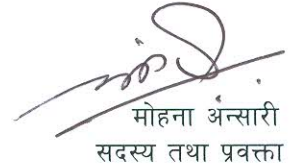 मोहना अंन्सारी
सदस्य तथा प्रवक्ता